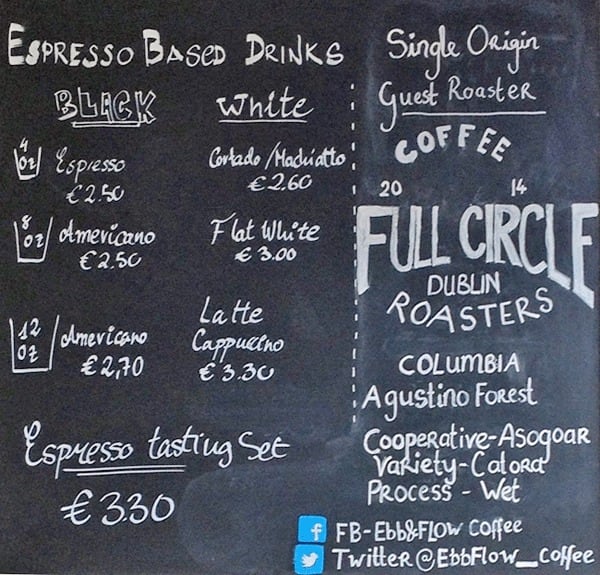 Espresso Based Drinks
BLACK
White
4 oz
Espresso
€2.50
Cortado/Machiatto
€2.60
8 oz
Americano
€2.50
Flat White
€3.00
12 oz
Americano
€2,70
Latte
Cappuccino
€3.30
Espresso tasting Set
€3.30
Single Origin
Guest Roaster
COFFEE
20 14
FULL CIRCLE
DUBLIN
ROASTERS
COLUMBIA
Agustino Forest
Cooperative-Asogoar
Variety-Catora
Process - Wet
f FB-Ebb&Flow Coffee
Twitter@EbbFlow_Coffee